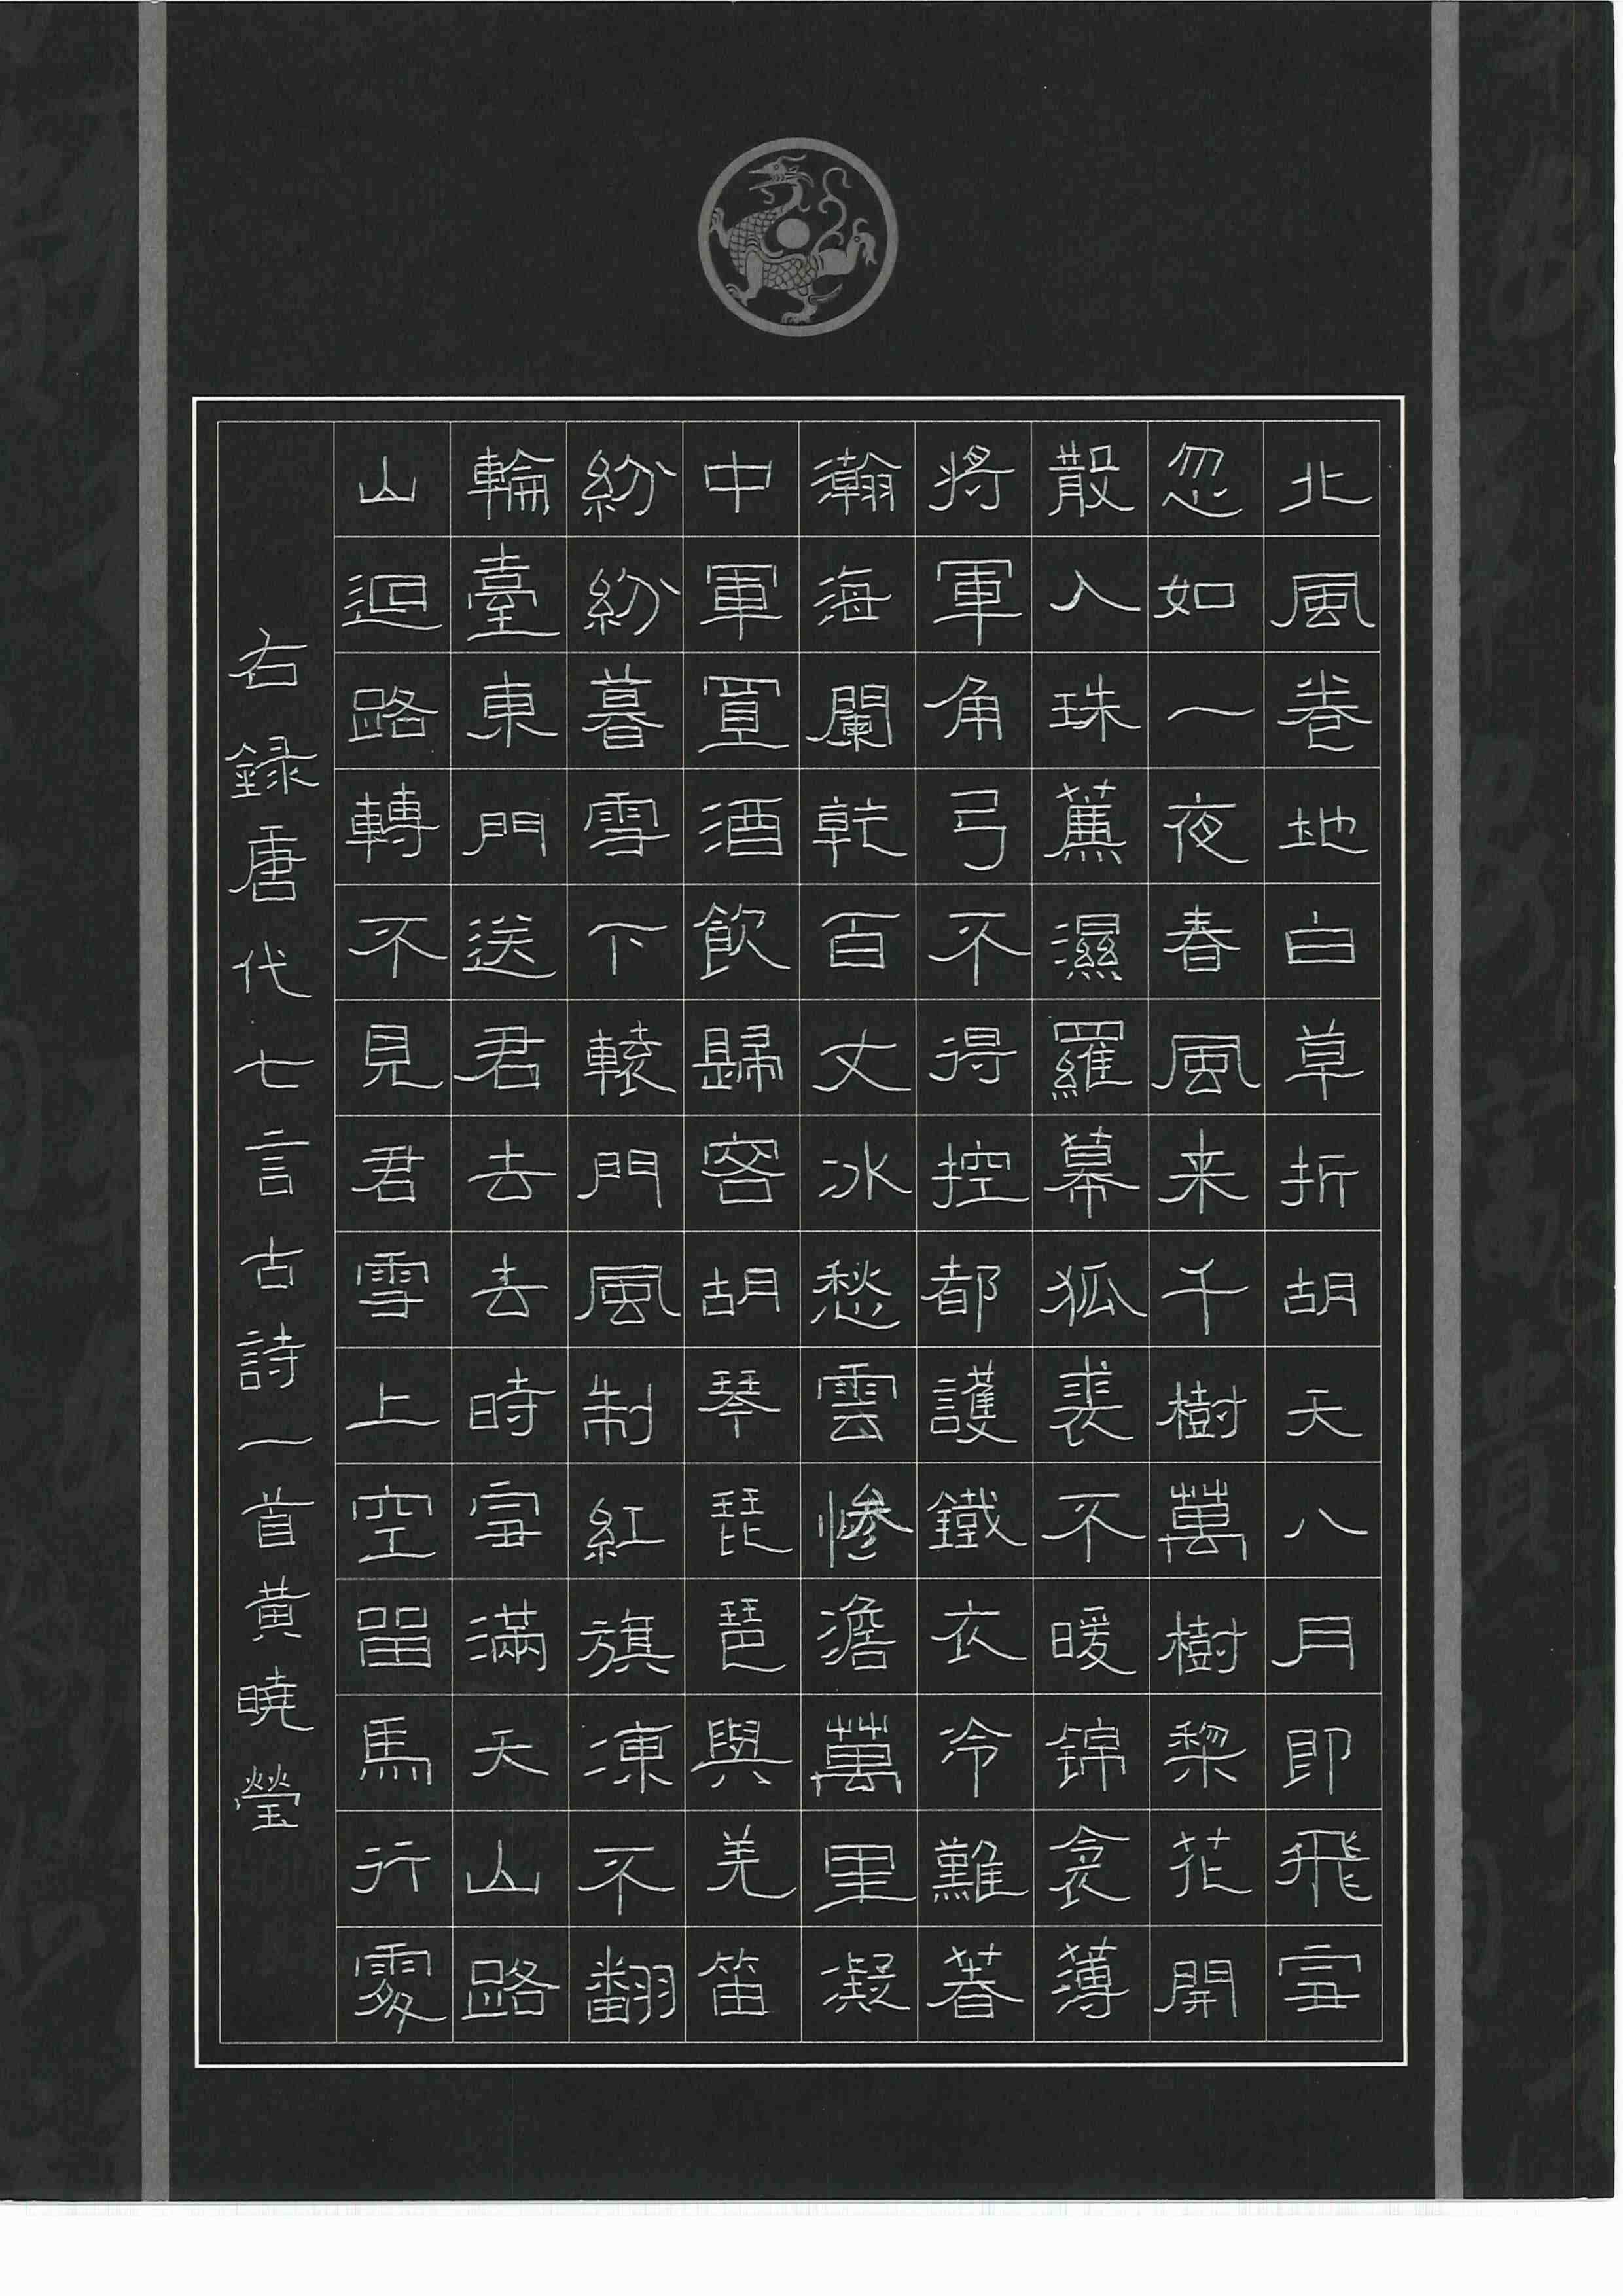 北風卷地白草折胡天八月即飛雪
忽如一夜春風来千樹萬樹梨花開
散入珠薕濕羅幕狐裘不暖錦衾薄
將軍角弓不得控都護鐵衣冷難著
瀚海闌乾百丈冰愁雲慘澹萬里凝
中軍置酒飲歸客胡琴琵琶與羌笛
紛紛暮雪下轅門風制紅旗凍不翻
輪臺東門送君去去時雪滿天山路
山迴路轉不見君雪上空留馬行處
右録唐代七言古詩一首黃曉瑩